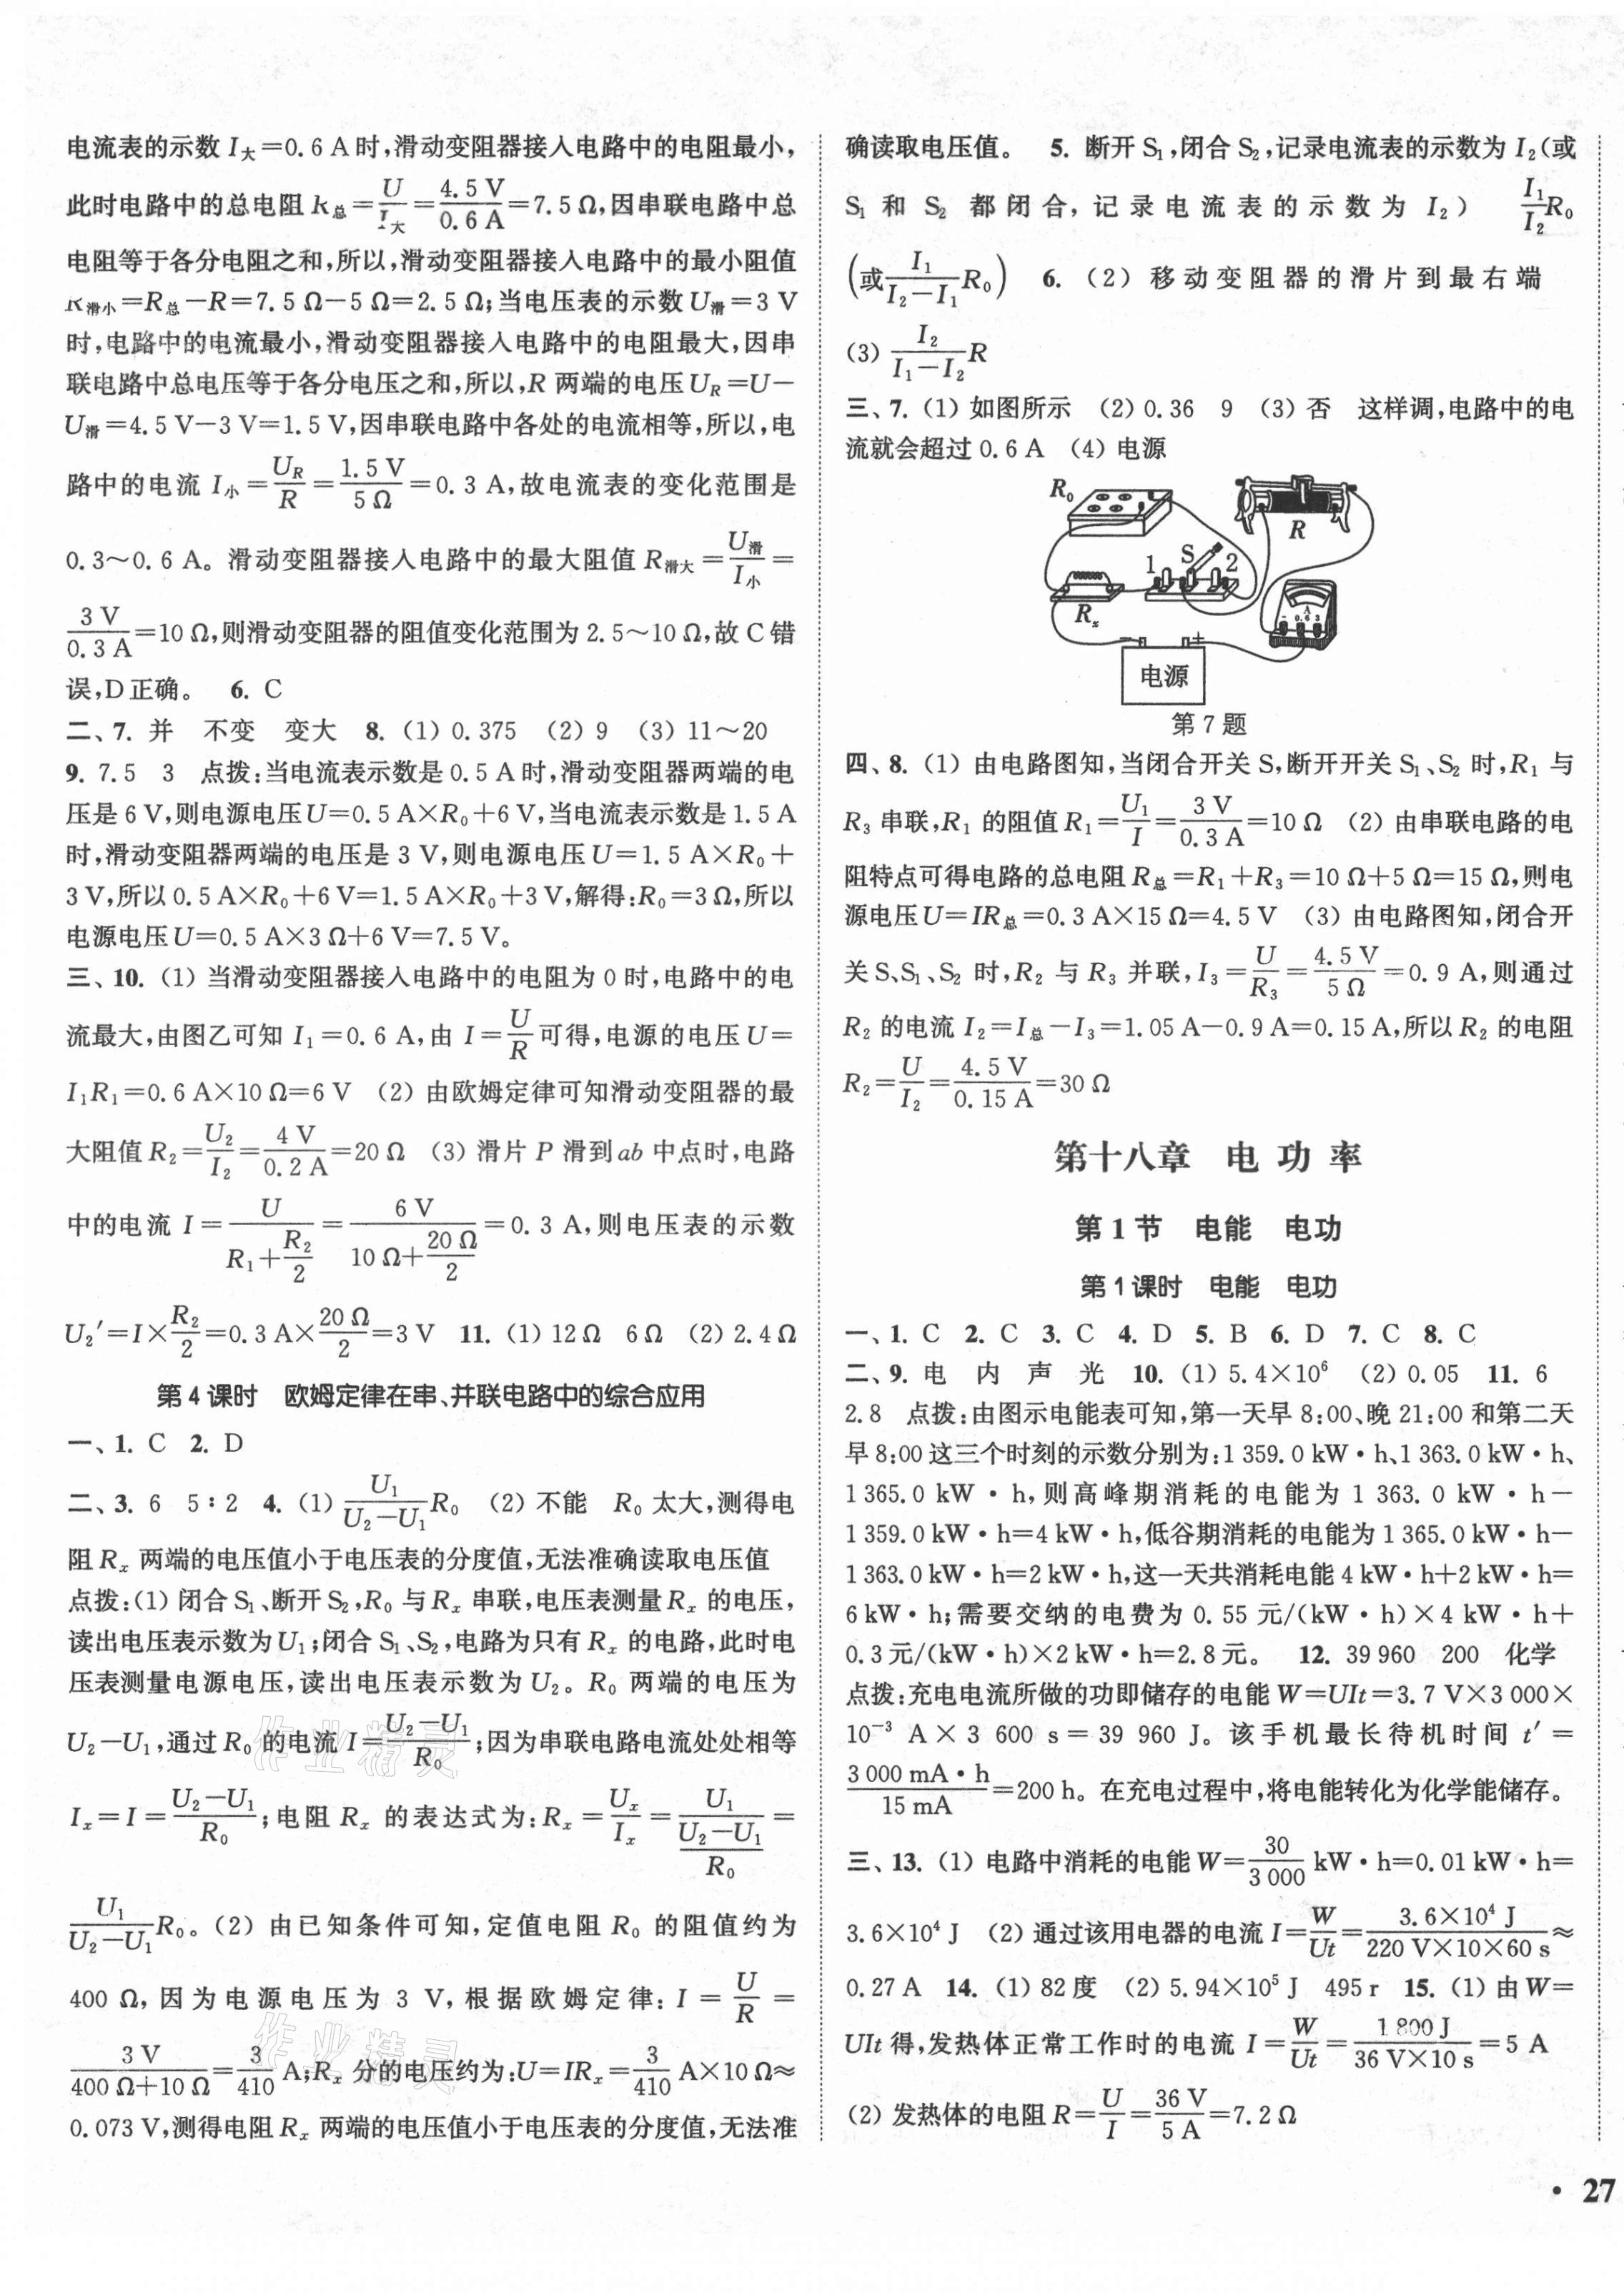 电流表的示数 I大=0.6 A时,滑动变阻器接入电路中的电阻最小,
此时电路中的总电阻R总=U/I大=4.5 V/0.6 A=7.5 Ω,因串联电路中总
电阻等于各分电阻之和,所以,滑动变阻器接入电路中的最小阻值
R滑小=R总−R=7.5 Ω−5 Ω=2.5 Ω;当电压表的示数U滑=3 V
时,电路中的电流最小,滑动变阻器接入电路中的电阻最大,因串
联电路中总电压等于各分电压之和,所以,R 两端的电压UR=U−
U滑=4.5 V−3 V=1.5 V,因串联电路中各处的电流相等,所以,电
路中的电流 I小=UR/R=1.5 V/5 Ω=0.3 A,故电流表的变化范围是
0.3~0.6 A。滑动变阻器接入电路中的最大阻值R滑大=U滑/I小=
3 V/0.3 A=10 Ω,则滑动变阻器的阻值变化范围为 2.5~10 Ω,故 C 错
误,D正确。 6. C
二、7. 并 不变 变大 8. (1) 0.375 (2) 9 (3) 11~20
9. 7.5 3 点拨:当电流表示数是 0.5 A 时,滑动变阻器两端的电
压是 6 V,则电源电压U=0.5 A×R₀+6 V,当电流表示数是 1.5 A
时,滑动变阻器两端的电压是 3 V,则电源电压U=1.5 A×R₀+
3 V,所以 0.5 A×R₀+6 V=1.5 A×R₀+3 V,解得:R₀=3 Ω,所以
电源电压U=0.5 A×3 Ω+6 V=7.5 V。
三、10. (1) 当滑动变阻器接入电路中的电阻为 0 时,电路中的电
流最大,由图乙可知 I₁=0.6 A,由 I=U/R可得,电源的电压U=
I₁R₁=0.6 A×10 Ω=6 V (2) 由欧姆定律可知滑动变阻器的最
大阻值R₂=U₂/I₂=4 V/0.2 A=20 Ω (3) 滑片 P 滑到ab 中点时,电路
中的电流 I=U/(R₁+R₂/2)=6 V/(10 Ω+20 Ω/2)=0.3 A,则电压表的示数
U₂′=I×R₂/2=0.3 A×20 Ω/2=3 V 11. (1) 12 Ω 6 Ω (2) 2.4 Ω
第 4 课时 欧姆定律在串、并联电路中的综合应用
一、1. C 2. D
二、3. 6 5∶2 4. (1) U₁/(U₂−U₁)R₀ (2) 不能 R₀ 太大,测得电
阻Rₓ 两端的电压值小于电压表的分度值,无法准确读取电压值
点拨:(1) 闭合S₁、断开S₂,R₀ 与Rₓ 串联,电压表测量Rₓ 的电压,
读出电压表示数为U₁;闭合S₁、S₂,电路为只有Rₓ 的电路,此时电
压表测量电源电压,读出电压表示数为U₂。R₀ 两端的电压为
U₂−U₁,通过R₀ 的电流I=(U₂−U₁)/R₀;因为串联电路电流处处相等
Iₓ=I=(U₂−U₁)/R₀;电阻Rₓ 的表达式为:Rₓ=Uₓ/Iₓ=U₁/((U₂−U₁)/R₀)=
U₁/(U₂−U₁)R₀。(2) 由已知条件可知,定值电阻 R₀ 的阻值约为
400 Ω,因为电源电压为 3 V,根据欧姆定律:I=U/R=
3 V/(400 Ω+10 Ω)=3/410 A;Rₓ 分的电压约为:U=IRₓ=3/410 A×10 Ω≈
0.073 V,测得电阻Rₓ 两端的电压值小于电压表的分度值,无法准
确读取电压值。 5. 断开 S₁,闭合 S₂,记录电流表的示数为 I₂(或
S₁ 和 S₂ 都闭合,记录电流表的示数为 I₂) I₁/I₂R₀
(或I₁/(I₂−I₁)R₀) 6. (2) 移动变阻器的滑片到最右端
(3) I₂/(I₁−I₂)R
三、7. (1) 如图所示 (2) 0.36 9 (3) 否 这样调,电路中的电
流就会超过 0.6 A (4) 电源
R₀
R
1 S 2
Rₓ
A
− 0.6 3
− +
电源
第 7 题
四、8. (1) 由电路图知,当闭合开关 S,断开开关 S₁、S₂ 时,R₁ 与
R₃ 串联,R₁ 的阻值R₁=U₁/I=3 V/0.3 A=10 Ω (2) 由串联电路的电
阻特点可得电路的总电阻R总=R₁+R₃=10 Ω+5 Ω=15 Ω,则电
源电压U=IR总=0.3 A×15 Ω=4.5 V (3) 由电路图知,闭合开
关 S、S₁、S₂ 时,R₂ 与 R₃ 并联,I₃=U/R₃=4.5 V/5 Ω=0.9 A,则通过
R₂ 的电流 I₂=I总−I₃=1.05 A−0.9 A=0.15 A,所以R₂ 的电阻
R₂=U/I₂=4.5 V/0.15 A=30 Ω
第十八章 电 功 率
第 1 节 电能 电功
第 1 课时 电能 电功
一、1. C 2. C 3. C 4. D 5. B 6. D 7. C 8. C
二、9. 电 内 声 光 10. (1) 5.4×10⁶ (2) 0.05 11. 6
2.8 点拨:由图示电能表可知,第一天早 8:00、晚 21:00 和第二天
早 8:00 这三个时刻的示数分别为:1 359.0 kW·h、1 363.0 kW·h、
1 365.0 kW·h,则高峰期消耗的电能为 1 363.0 kW·h−
1 359.0 kW·h=4 kW·h,低谷期消耗的电能为 1 365.0 kW·h−
1 363.0 kW·h=2 kW·h,这一天共消耗电能 4 kW·h+2 kW·h=
6 kW·h;需要交纳的电费为 0.55 元/(kW·h)×4 kW·h+
0.3 元/(kW·h)×2 kW·h=2.8 元。 12. 39 960 200 化学
点拨:充电电流所做的功即储存的电能W=UIt=3.7 V×3 000×
10⁻³ A×3 600 s=39 960 J。该手机最长待机时间 t′=
3 000 mA·h/15 mA=200 h。在充电过程中,将电能转化为化学能储存。
三、13. (1) 电路中消耗的电能W=30/3 000 kW·h=0.01 kW·h=
3.6×10⁴ J (2) 通过该用电器的电流 I=W/Ut=3.6×10⁴ J/(220 V×10×60 s)≈
0.27 A 14. (1) 82 度 (2) 5.94×10⁵ J 495 r 15. (1) 由W=
UIt 得,发热体正常工作时的电流 I=W/Ut=1 800 J/(36 V×10 s)=5 A
(2) 发热体的电阻R=U/I=36 V/5 A=7.2 Ω
· 27
作业精灵
作业精灵